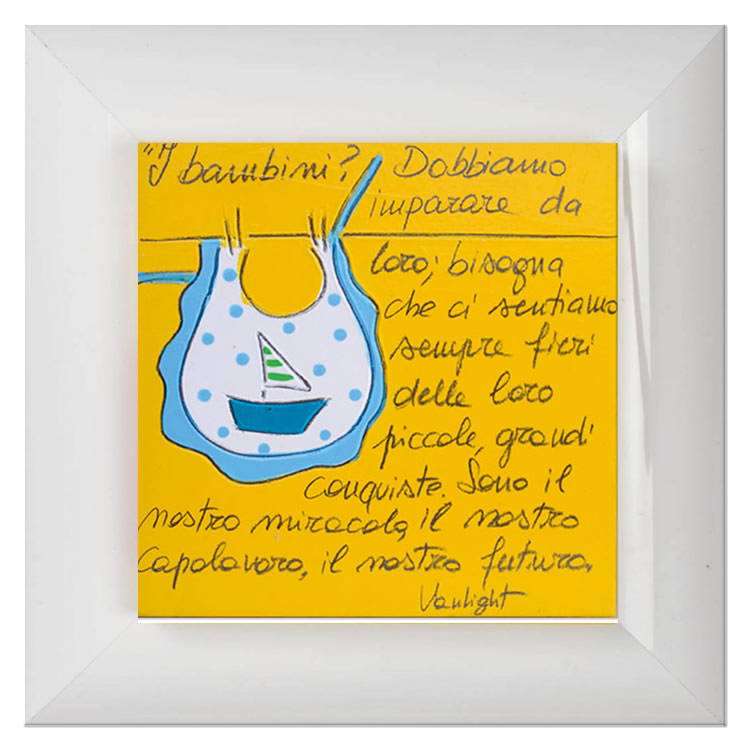 "I bambini? Dobbiamo
imparare da
loro; bisogna
che ci sentiamo
sempre fieri
delle loro
piccole, grandi
conquiste. Sono il
nostro miracolo, il nostro
capolavoro, il nostro futuro.
Vanlight